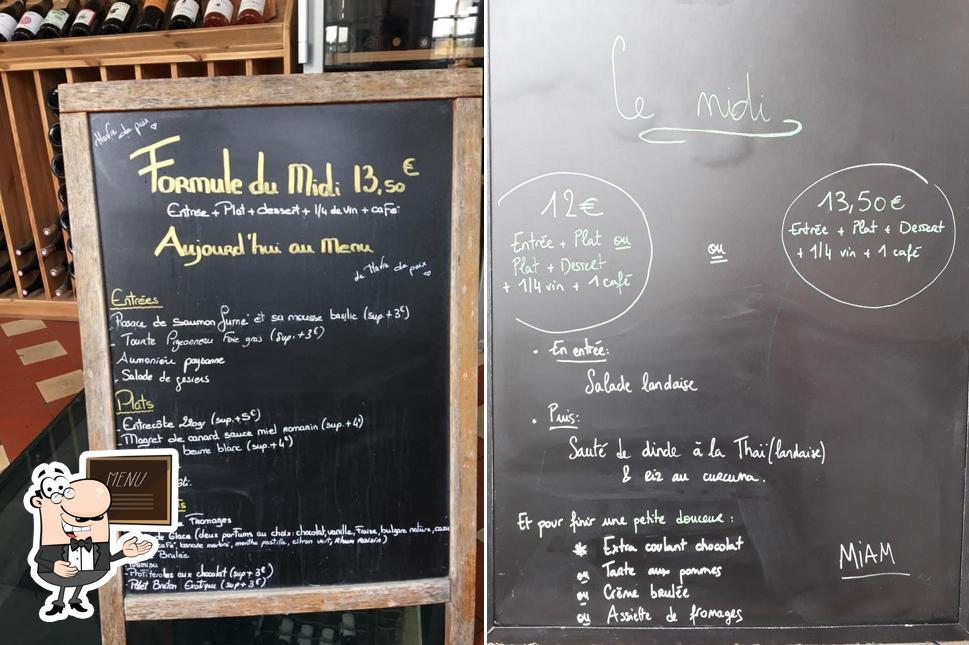 Havre de paix
Formule du Midi 13,50€
Entrée + Plat + dessert + 1/4 de vin + café
Aujourd'hui au Menu
de Havre de paix
Entrées
- Rosace de saumon fumé et sa mousse basilic (sup.+3€)
- Tourte Pigeonneau Foie gras (sup.+3€)
Aumonière paysanne
- Salade de gesiers
Plats
- Entrecôte 220gr (sup.+5€)
- Magret de canard sauce miel romarin (sup.+4€)
beurre blanc (sup.+4€)
Fromages
de Glace (deux parfums au choix: chocolat, vanille, fraise, bulgare nature,
menthe pastille, citron vert, Rhum raisin)
Brulée
- Profiteroles aux chocolat (sup+3€)
- Palet Breton Exotique (sup+3€)
MENU
Le midi
12€
Entrée + Plat ou
Plat + Dessert
+ 1/4 vin + 1 café
ou
13,50€
Entrée + Plat + Dessert
+ 1/4 vin + 1 café
• En entrée:
Salade landaise
• Puis:
Sauté de dinde à la Thaï (landaise)
& Riz au curcuma.
Et pour finir une petite douceur :
* Extra coulant chocolat
ou Tarte aux pommes
ou Crème brulée
ou Assiette de fromages
MIAM